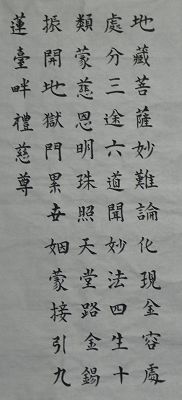 地藏菩薩妙難論化現金容處
處分三途六道聞妙法四生十
類蒙慈恩明珠照天堂路金錫
振開地獄門累世姻蒙接引九
蓮臺畔禮慈尊